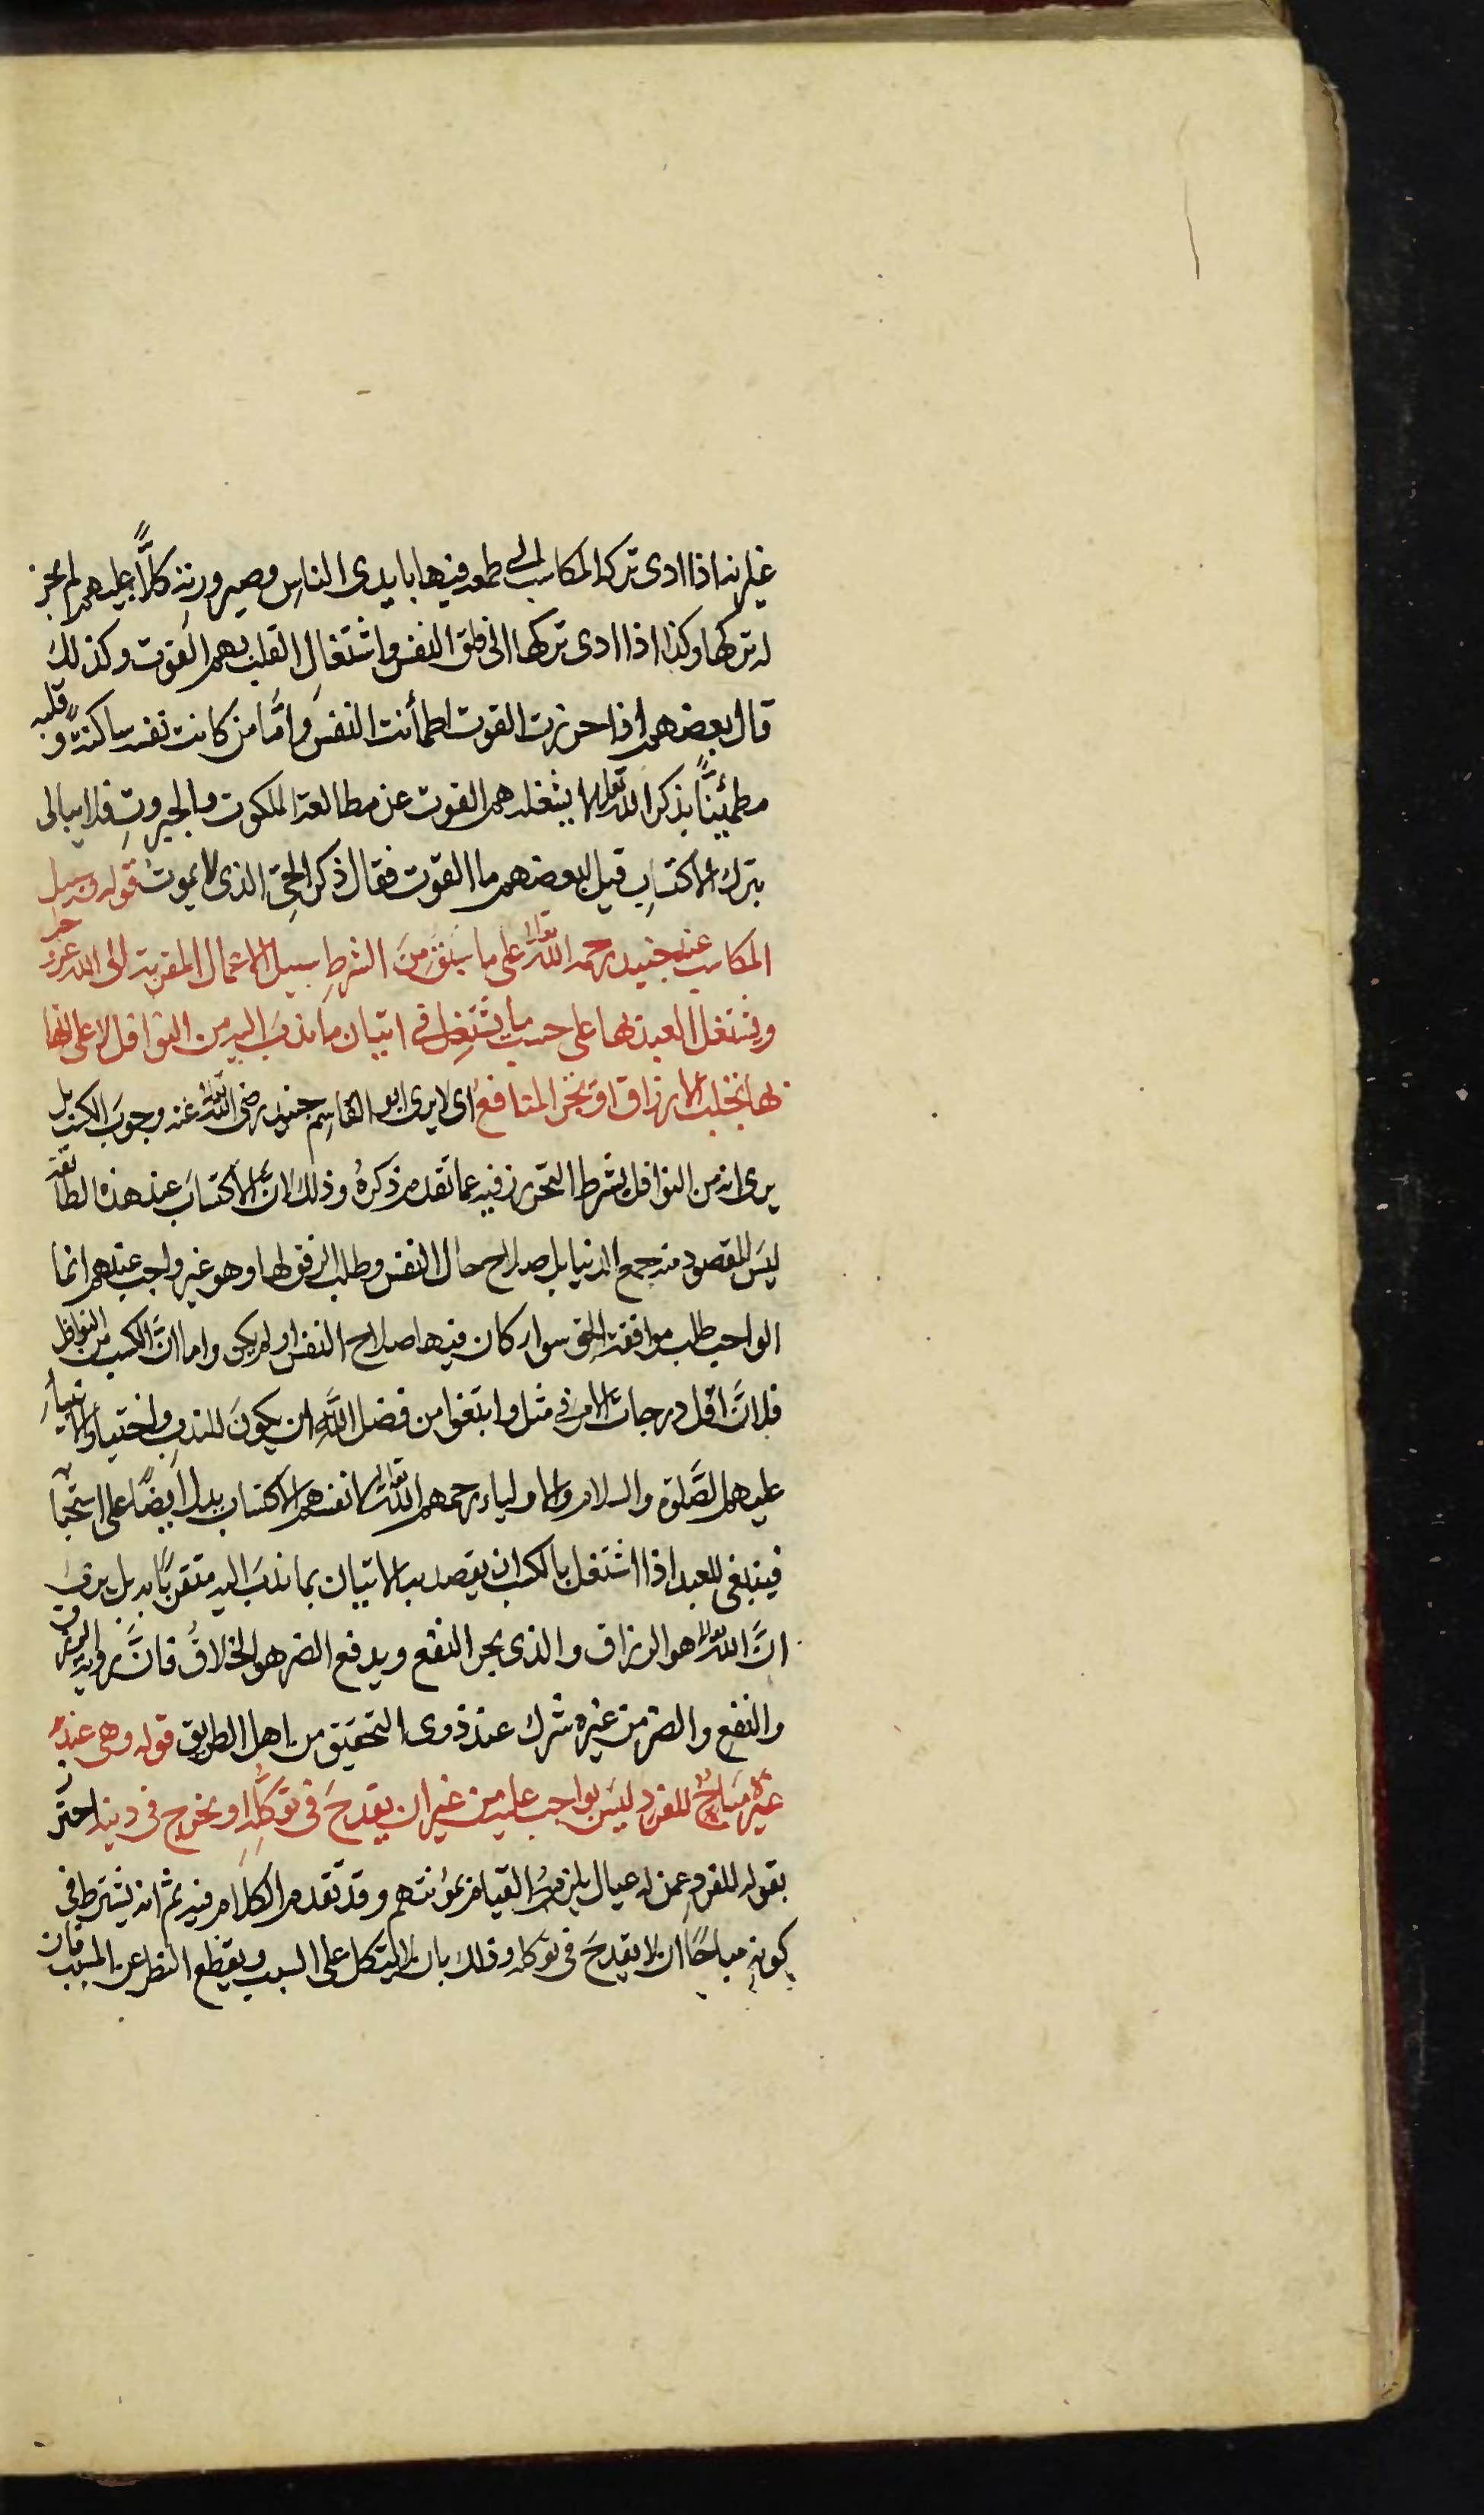 غير انه اذا ادى ترك المكاسب الى طمعه فيها بايدى الناس وصيرورته كلًّا عليهم لم يجز
له تركها وكذا اذا ادى تركها الى قلق النفس واشتغالِ القلب بهم القوت وكذلك
قال بعضهم اذا احرزت القوت اطمأنت النفس وامَّا من كانت نفسه ساكنةً وقلبه
مطمئنًّا بذكر الله تعالى لا يشغله هم القوت عن مطالعة الملكوت والجبروتِ فلا يبالى
بترك الاكتسابِ قيل لبعضهم ما القوت فقال ذكر الحىّ الذى لا يموت قوله وسبيل
المكاسب عند جنيد رحمه الله تعالى على ما سبق من الشرطِ سبيل الاعمال المقربة الى الله عز وجل
ويشتغل العبد بها على حسب ما يشتغل فى اتيان ما ندب اليه من النوافل لا على انها
بها تجلب الارزاق او تجر المنافع اى لا يرى ابو القاسم جنيد رضى الله تعالى عنه وجوبَ الكسب بل
يرى انه من النوافل بشرط التحرز فيه عما تقدم ذكرهُ وذلك لانَّ الاكتسابَ عند هذه الطائفة
ليسَ المقصود منه جمع الدنيا بل صلاح حال النفس وطلب الرفق لها وهو غير واجب عندهم انما
الواجب طلب موافقة الحق سواء كان فيها صلاح النفس او لم يكن واما انَّ الكسب من النوافل
فلانَّ اقل درجات الامر فى مثل وابتغوا من فضل اللهِ ان يكونَ للندب واختيار الانبيأِ
عليهم الصَّلوة والسلام والاولياء رحمهم الله تعالى لانفسهم الاكتساب يدل ايضًا على استحبابه
فينبغى للعبد اذا اشتغل بالكسب ان يقصد به الاتيان بما ندبَ اليه متقربًا به بل يرى
انَّ الله تعالى هو الرزاق والذى يجر النفع ويدفع الضر هو الخلاقُ فانَّ رؤية الرزق
والنفع والضر من غيره شرك عند ذوى التحقيق من اهل الطريق قوله وهى عند
غيره مباحٌ للفرد ليسَ بواجب عليه من غير ان يقدحَ فى توكّلِه او يخرج فى دينه احترز
بقوله للفردِ عمن له عيال يلزمهُ القيام بمؤنتهم وقد تقدم الكلام فيه ثم انه يشترط فى
كونهِ مباحًا ان لا يقدحَ فى توكله وذلك بان لا يتكل على السبب ويقطع النظر عن المسبب فان